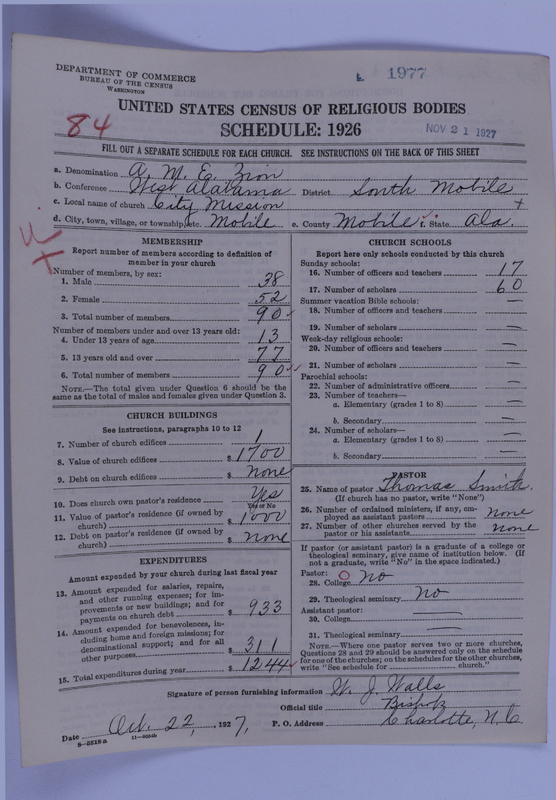 L 1977
DEPARTMENT OF COMMERCE
BUREAU OF THE CENSUS
WASHINGTON
UNITED STATES CENSUS OF RELIGIOUS BODIES
84
SCHEDULE: 1926
NOV 21 1927
FILL OUT A SEPARATE SCHEDULE FOR EACH CHURCH. SEE INSTRUCTIONS ON THE BACK OF THIS SHEET
a. Denomination A. M. E. Zion
b. Conference West Alabama District South Mobile
c. Local name of church City Mission +
d. City, town, village, or township, etc. Mobile e. County Mobile f. State Ala.
MEMBERSHIP
Report number of members according to definition of
member in your church
Number of members, by sex:
1. Male 38
2. Female 52
3. Total number of members 90
Number of members under and over 13 years old:
4. Under 13 years of age 13
5. 13 years old and over 77
6. Total number of members 90
NOTE.—The total given under Question 6 should be the
same as the total of males and females given under Question 3.
CHURCH BUILDINGS
See instructions, paragraphs 10 to 12
7. Number of church edifices 1
8. Value of church edifices $ 1700
9. Debt on church edifices $ none
10. Does church own pastor's residence Yes
Yes or No
11. Value of pastor's residence (if owned by
church) $ 1000
12. Debt on pastor's residence (if owned by
church) $ none
EXPENDITURES
Amount expended by your church during last fiscal year
13. Amount expended for salaries, repairs,
and other running expenses; for im-
provements or new buildings; and for
payments on church debt $ 933
14. Amount expended for benevolences, in-
cluding home and foreign missions; for
denominational support; and for all
other purposes $ 311
15. Total expenditures during year $ 1244
CHURCH SCHOOLS
Report here only schools conducted by this church
Sunday schools:
16. Number of officers and teachers 17
17. Number of scholars 60
Summer vacation Bible schools:
18. Number of officers and teachers —
19. Number of scholars —
Week-day religious schools:
20. Number of officers and teachers —
21. Number of scholars —
Parochial schools:
22. Number of administrative officers —
23. Number of teachers—
a. Elementary (grades 1 to 8) —
b. Secondary —
24. Number of scholars—
a. Elementary (grades 1 to 8) —
b. Secondary —
PASTOR
25. Name of pastor Thomas Smith.
(If church has no pastor, write "None")
26. Number of ordained ministers, if any, em-
ployed as assistant pastors none
27. Number of other churches served by the
pastor or his assistants none
If pastor (or assistant pastor) is a graduate of a college or
theological seminary, give name of institution below. (If
not a graduate, write "No" in the space indicated.)
Pastor:
28. College No
29. Theological seminary No
Assistant pastor:
30. College —
31. Theological seminary —
NOTE.—Where one pastor serves two or more churches,
Questions 28 and 29 should be answered only on the schedule
for one of the churches; on the schedules for the other churches,
write "See schedule for church."
Signature of person furnishing information W. J. Walls
Official title Bishop
Date Oct. 22, 1927, P. O. Address Charlotte, N. C.
8-551B a 11-9054b